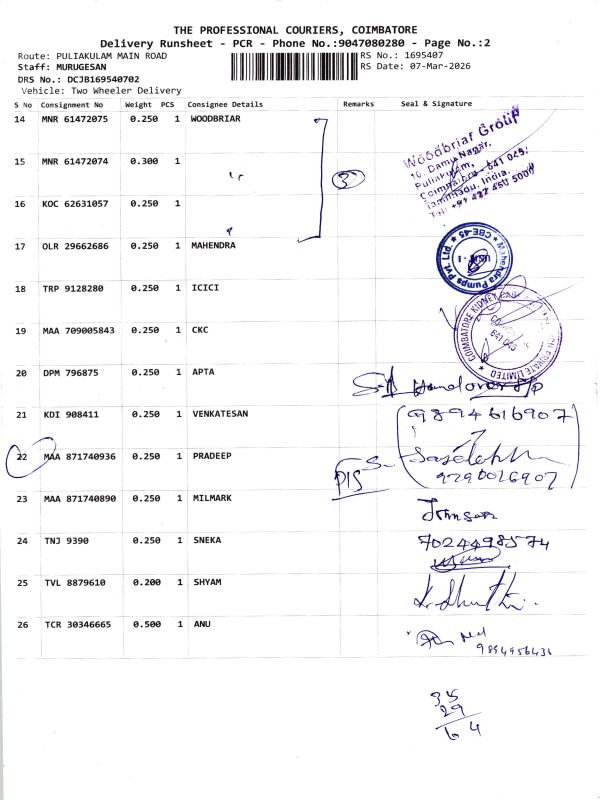 THE PROFESSIONAL COURIERS, COIMBATORE
Delivery Runsheet - PCR - Phone No.:9047080280 - Page No.:2
Route: PULIAKULAM MAIN ROAD RS No.: 1695407
Staff: MURUGESAN RS Date: 07-Mar-2026
DRS No.: DCJB169540702
Vehicle: Two Wheeler Delivery
S No Consignment No Weight PCS Consignee Details Remarks Seal & Signature
14 MNR 61472075 0.250 1 WOODBRIAR
Woodbriar Group
10, Damu Nagar,
Puliakulam,
Coimbatore - 641 045.
Tamilnadu, India.
Tel: +91 427 450 5000
15 MNR 61472074 0.300 1 " 3
16 KOC 62631057 0.250 1 "
17 OLR 29662686 0.250 1 MAHENDRA
Mahendra Pumps Pvt. Ltd. CBE-45
18 TRP 9128280 0.250 1 ICICI
19 MAA 709005843 0.250 1 CKC
COIMBATORE KIDNEY PRIVATE LIMITED
641 045
20 DPM 796875 0.250 1 APTA
Handover
21 KDI 908411 0.250 1 VENKATESAN 9894616907
22 MAA 871740936 0.250 1 PRADEEP
9790026907
23 MAA 871740890 0.250 1 MILMARK Johnson
24 TNJ 9390 0.250 1 SNEKA 7024498574
25 TVL 8879610 0.200 1 SHYAM
26 TCR 30346665 0.500 1 ANU
9894956434
35
29
64